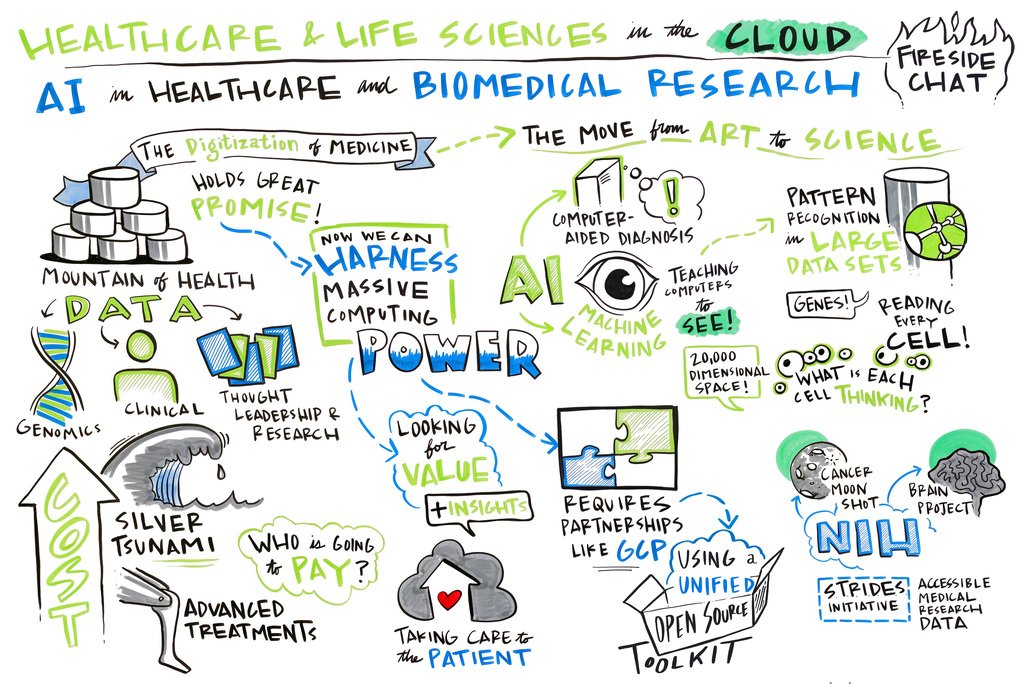 HEALTHCARE & LIFE SCIENCES in the CLOUD
AI in HEALTHCARE and BIOMEDICAL RESEARCH
FIRESIDE
CHAT
THE Digitization of MEDICINE
THE MOVE from ART to SCIENCE
HOLDS GREAT
PROMISE!
MOUNTAIN of HEALTH
DATA
GENOMICS
CLINICAL
THOUGHT
LEADERSHIP &
RESEARCH
NOW WE CAN
HARNESS
MASSIVE
COMPUTING
POWER
AI
COMPUTER-
AIDED DIAGNOSIS
!
MACHINE
LEARNING
TEACHING
COMPUTERS
to
SEE!
PATTERN
RECOGNITION
in LARGE
DATA SETS
GENES!
READING
EVERY
CELL!
20,000
DIMENSIONAL
SPACE!
WHAT is EACH
CELL THINKING?
COST
SILVER
TSUNAMI
WHO is GOING
to PAY?
ADVANCED
TREATMENTS
LOOKING
for
VALUE
+INSIGHTS
TAKING CARE to
the PATIENT
REQUIRES
PARTNERSHIPS
LIKE GCP
USING a
UNIFIED
OPEN SOURCE
TOOLKIT
CANCER
MOON
SHOT
BRAIN
PROJECT
NIH
STRIDES
INITIATIVE
ACCESSIBLE
MEDICAL
RESEARCH
DATA